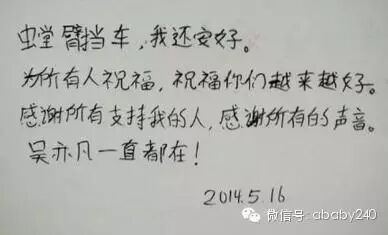 虫堂臂挡车，我还安好。
为所有人祝福，祝福你们越来越好。
感谢所有支持我的人，感谢所有的声音。
吴亦凡一直都在！
2014.5.16
微信号: ababy240